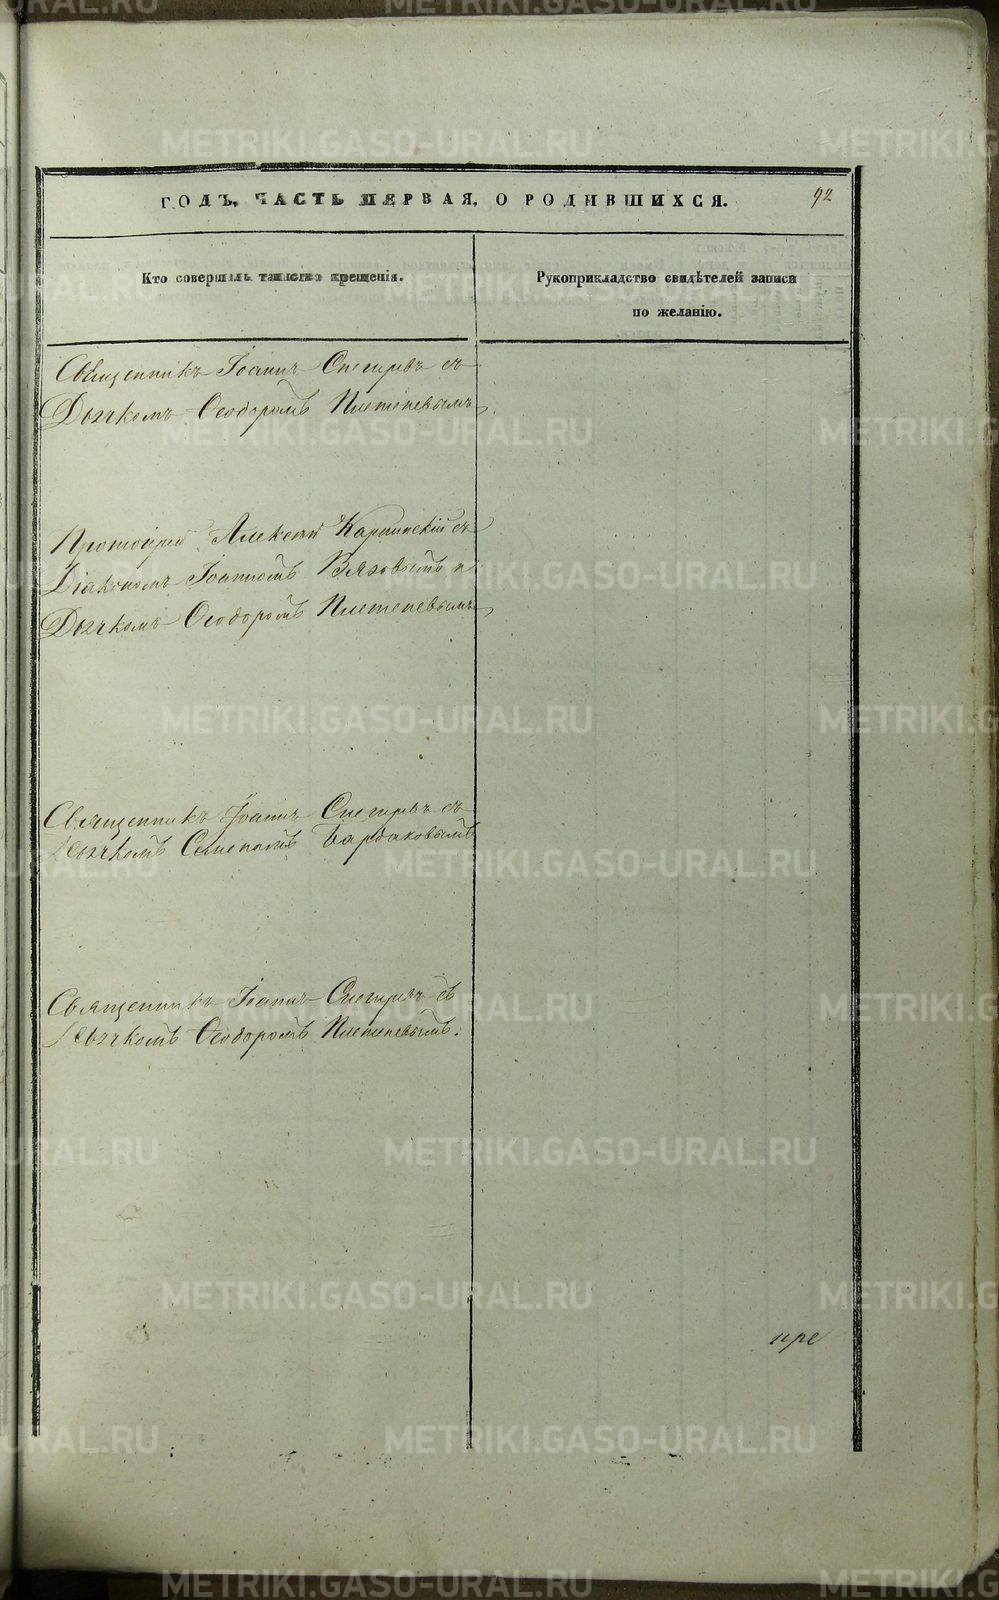 ГОДЪ, ЧАСТЬ ПЕРВАЯ, О РОДИВШИХСЯ.
92
Кто совершалъ таинство крещенія.
Рукоприкладство свидѣтелей записи
по желанію.
Священникъ Іоаннъ Снегирвъ съ
Дьячкомъ Ѳеодоромъ Плетеневымъ,
Протоіерей Алексѣй Карпинскій съ
Діакономъ Іоанномъ Вязовымъ и
Дьячкомъ Ѳеодоромъ Плетеневымъ,
Священникъ Іоаннъ Снегирвъ съ
Дьячкомъ Стефаномъ Бардаковымъ
Священникъ Іоаннъ Снегирвъ съ
Дьячкомъ Ѳеодоромъ Плетеневымъ.
пре
METRIKI.GASO-URAL.RU